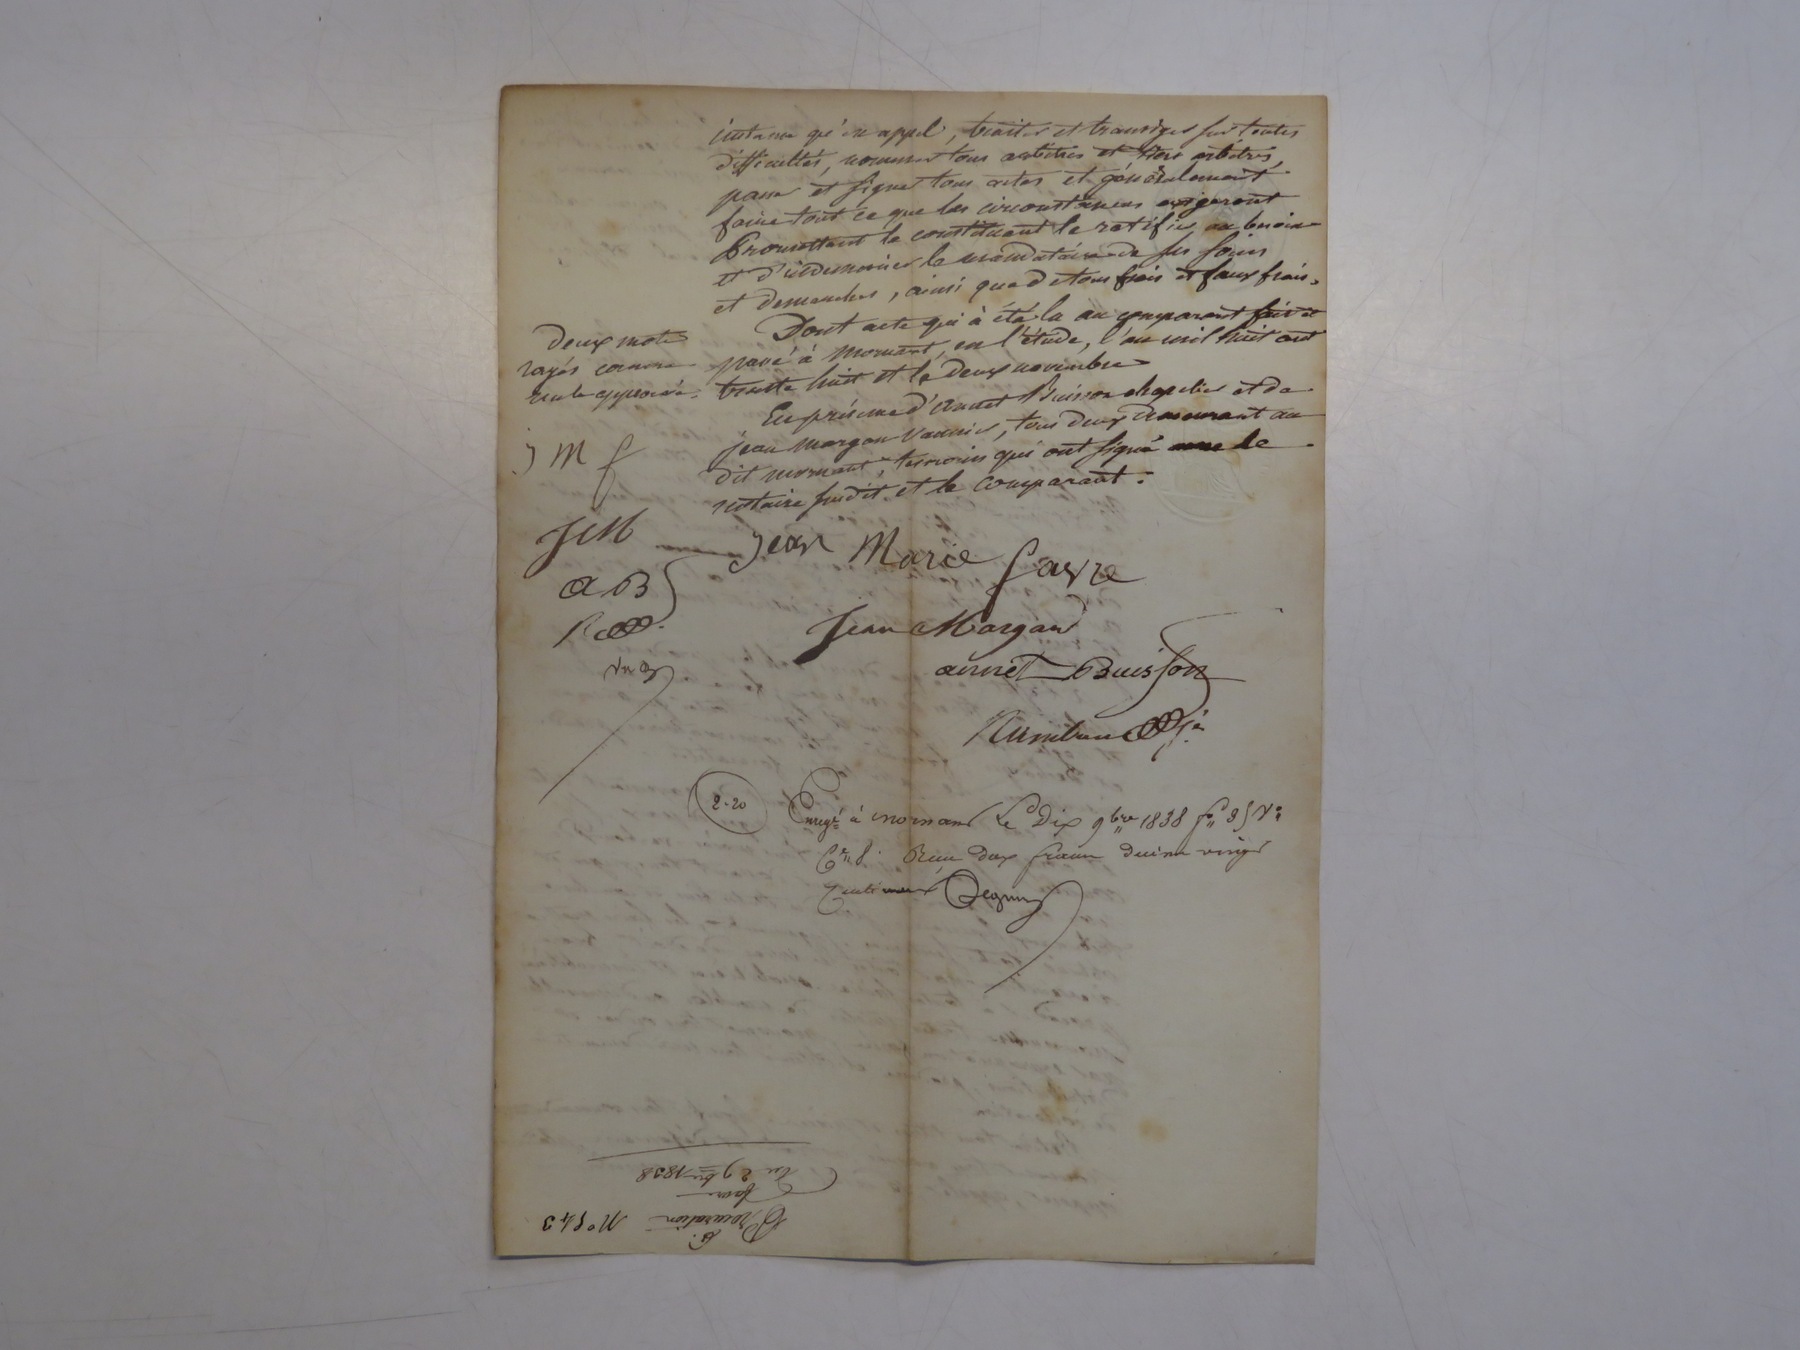 instance qu'en appel, traiter et transiger sur toutes
difficultés, nommer tous arbitres et tiers arbitres,
passer et signer tous actes et généralement
faire tout ce que les circonstances exigeront
Promettant le constituant le ratifier au besoin
et d'indemniser le mandataire de ses soins
et demarches, ainsi que de tous frais et faux frais,
Dont acte qui à été lu au comparant fait et
passé à Mornant, en l'étude, l'an mil huit cent
trente huit et le deux novembre
En présence d'annet Buisson chapelier et de
jean morgan vannier, tous deux demeurant au
dit mornant, temoins qui ont signé avec le
notaire susdit et le comparant.
deux mots
rayés comme
nuls approuvés.
J M f
JM
A B
jean Marie favre
Jean Morgan
annet Buisson
2-20
Enregé à mornant Le Dix 9bre 1838 fo 35 Vo
Ce 8. Reçu deux francs decime vingt
centimes
No 543
Procuration
favre
Du 2 9bre 1838